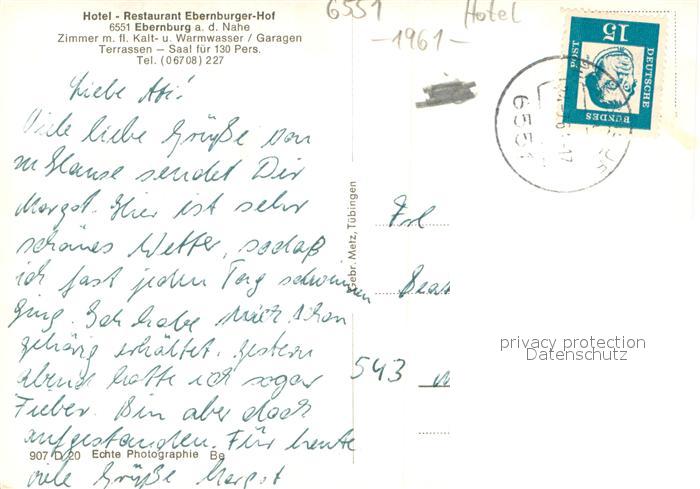 Hotel - Restaurant Ebernburger-Hof
6551 Ebernburg a. d. Nahe
Zimmer m. fl. Kalt- u. Warmwasser / Garagen
Terrassen — Saal für 130 Pers.
Tel. (0 67 08) 227
6551 Hotel
- 1961 -
15
DEUTSCHE
BUNDES
POST
6551
Liebe
Viele liebe Grüße von
zu Hause sendet Dir
Margot. Hier ist sehr
schönes Wetter, sodaß
ich fast jeden Tag schwimmen
ging. Ich habe mich schon
gehörig erkältet. Gestern
abend hatte ich sogar
Fieber. Bin aber doch
aufgestanden. Für heute
viele Grüße Margot
Gebr. Metz, Tübingen
Frl
Beat
543
907 D 20 Echte Photographie Be
privacy protection
Datenschutz